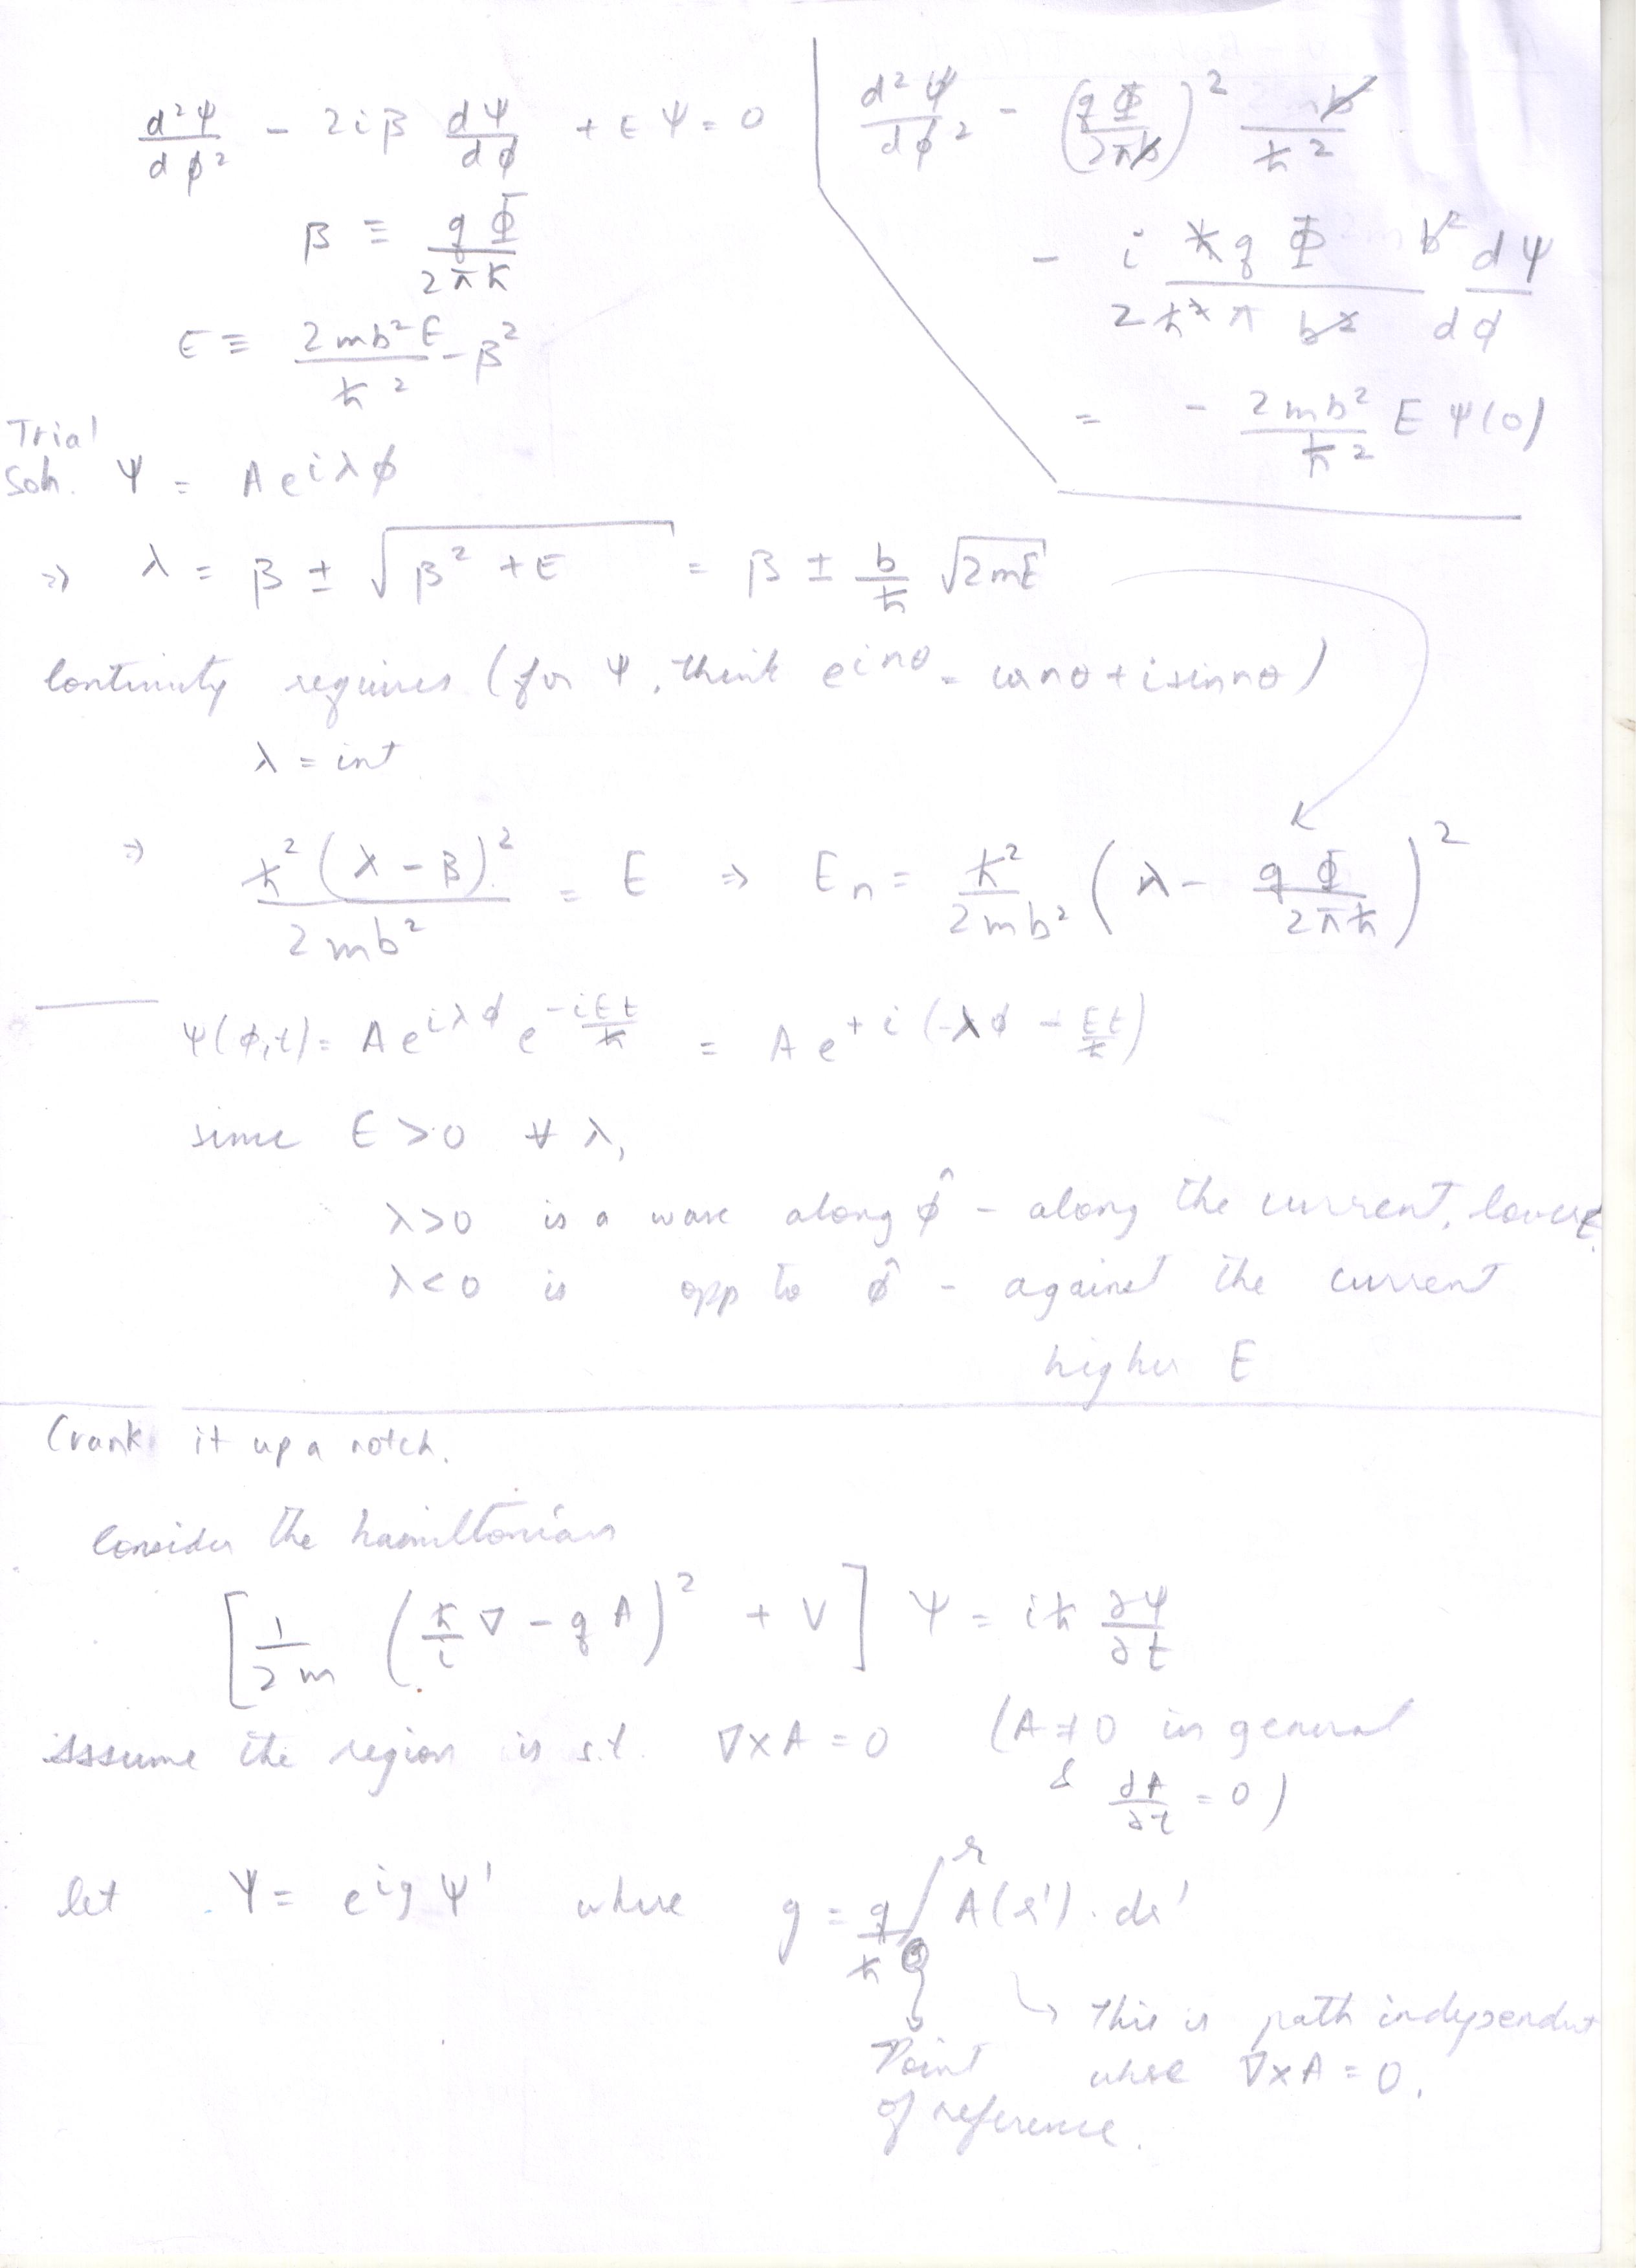 d²ψ/dφ² - 2iβ dψ/dφ + ϵ ψ = 0
β ≡ qΦ/2πħ
ϵ ≡ 2mb²E/ħ² - β²
d²ψ/dφ² - (qΦ/2πb)² b²/ħ²
- i ħqΦ b²/2ħ²π b² dψ/dφ
= - 2mb²/ħ² E ψ(0)
Trial
Soln. ψ = A e^{iλφ}
⇒ λ = β ± √(β² + ϵ) = β ± b/ħ √(2mE)
Continuity requires (for ψ, think e^{inθ} = cos nθ + i sin nθ)
λ = int
⇒ ħ²(λ - β)²/2mb² = E ⇒ E_n = ħ²/2mb² (λ - qΦ/2πħ)²
ψ(φ,t) = A e^{iλφ} e^{-iEt/ħ} = A e^{+i(λφ - Et/ħ)}
since E > 0 ∀ λ,
λ > 0 is a wave along φ̂ - along the current, lower E.
λ < 0 is opp to φ̂ - against the current
higher E
Crank it up a notch.
Consider the hamiltonian
[1/2m (ħ/i ∇ - qA)² + V] ψ = iħ ∂ψ/∂t
Assume the region is s.t. ∇×A = 0 (A ≠ 0 in general
& ∂A/∂t = 0)
let Ψ = e^{ig} Ψ' where g = q/ħ ∫_O^r A(r')·dr'
↳ This is path independent
where ∇×A = 0.
Point
of reference.